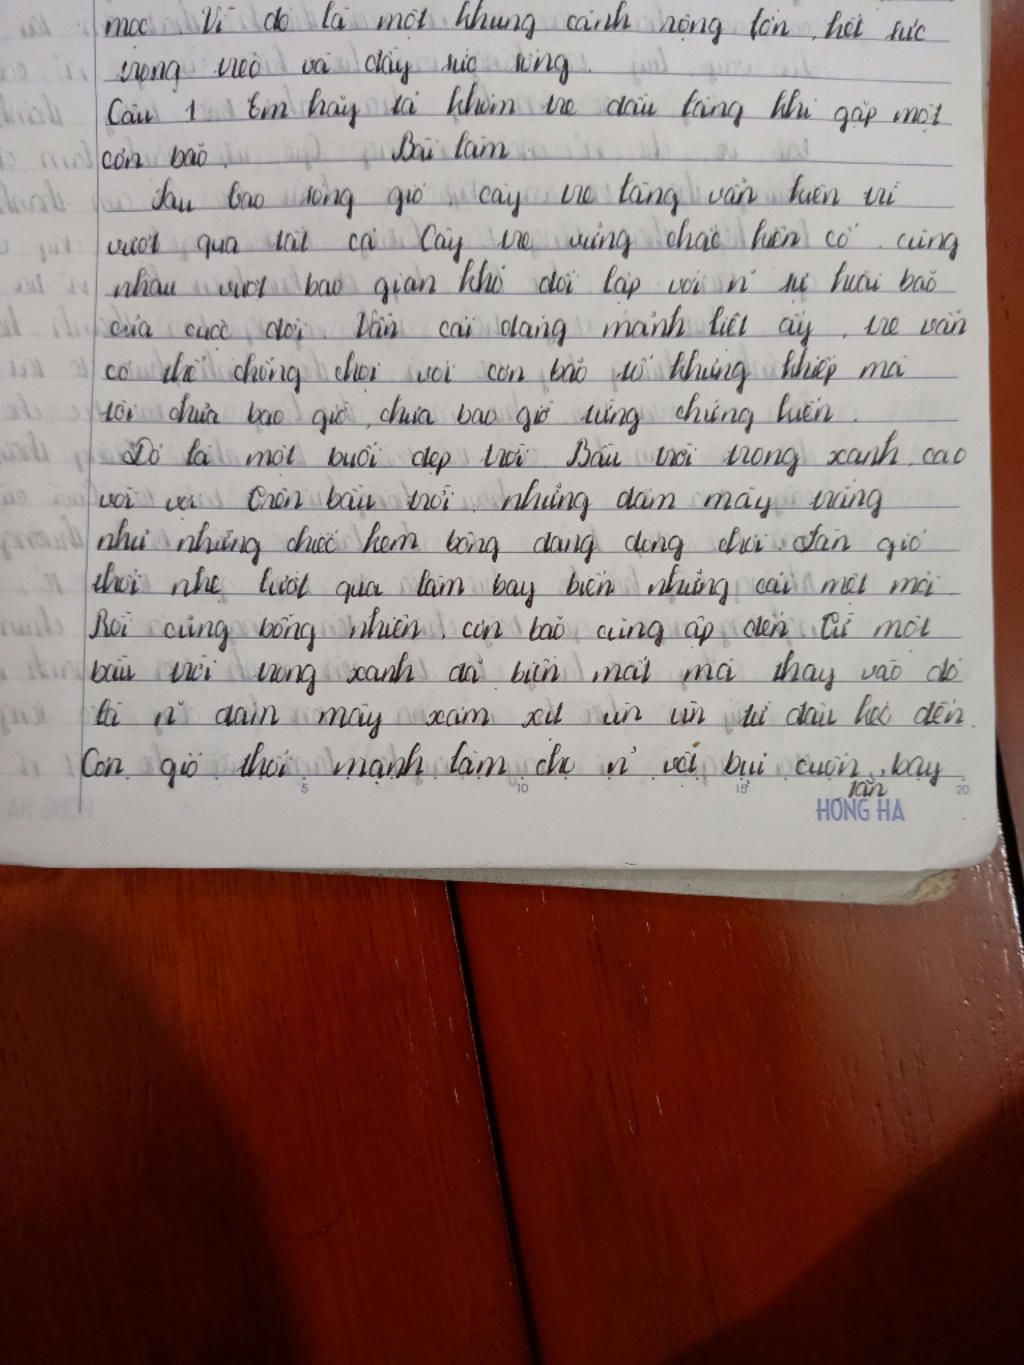 mọc. Vì đó là một khung cảnh rộng lớn, hết sức
trong trẻo và đầy sức sống.
Câu 1. Em hãy tả khóm tre đầu làng khi gặp một
cơn bão. Bài làm
Sau bao sóng gió, cây tre làng vẫn kiên trì
vượt qua tất cả. Cây tre vững chắc kiên cố, cùng
nhau vượt bao gian khó đối lập với n~ sự bão
của cuộc đời. Vẫn cái dáng mảnh liệt ấy, tre vẫn
có thể chống chọi với cơn bão tố khủng khiếp mà
tôi chưa bao giờ, chưa bao giờ từng chứng kiến.
Đó là một buổi đẹp trời. Bầu trời trong xanh, cao
vời vợi. Trên bầu trời, những đám mây trắng
như những chiếc kem bông đang dong chơi. Làn gió
thổi nhẹ lướt qua làm bay biến những cái mệt mỏi.
Rồi cũng bỗng nhiên, cơn bão cũng ập đến. Từ một
bầu trời trong xanh đã biến mất mà thay vào đó
là n~ đám mây xám xịt ùn ùn từ đâu kéo đến.
Cơn gió thổi mạnh làm cho n~ vết bụi cuộn, bay
tán
5 10 15 20
HONG HA